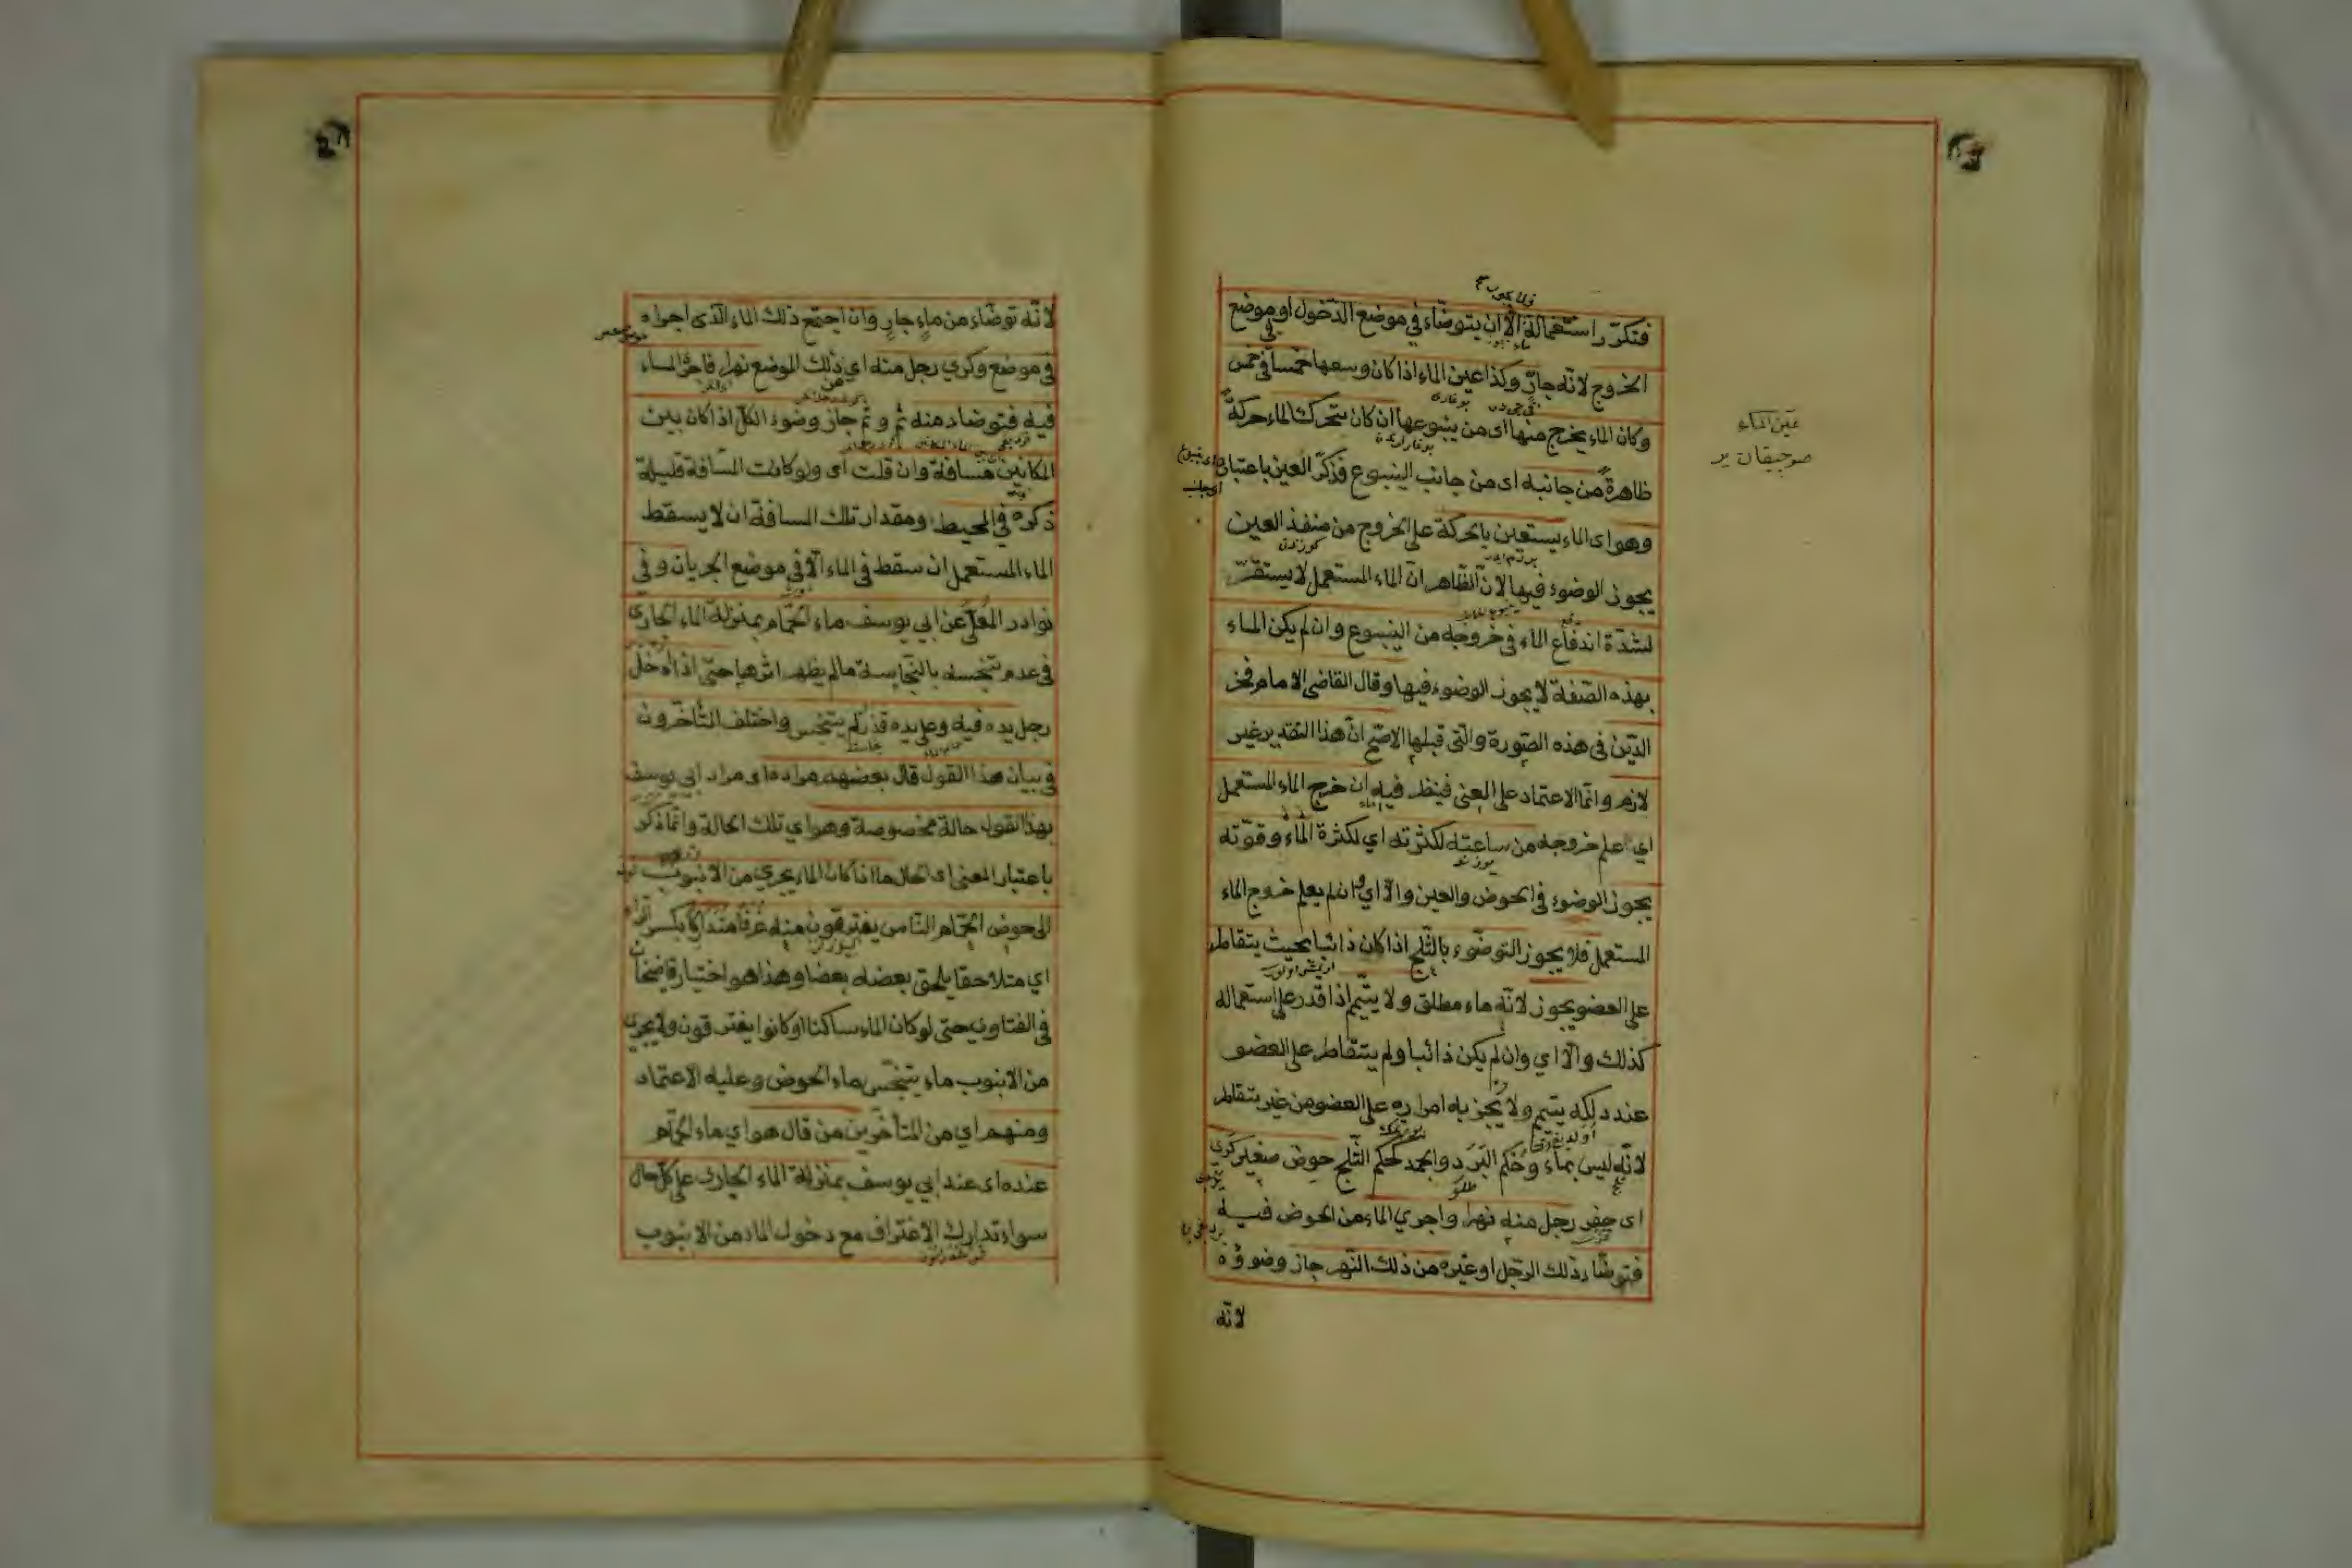 فتكرّر استعماله الّا ان يتوضّاء في موضع الدّخول او موضع
الخروج لانّه جارٍ وكذا عين الماء اذا كان وسعها خمسا في خمس
وكان الماء يخرج منها اى من ينبوعها ان كان يتحرك الماء حركةً
ظاهرةً من جانبه اى من جانب الينبوع فذكّر العين باعتبار
وهو اى الماء يستعين بالحركة على الخروج من منفذ العين
يجوز الوضوء فيها لانّ الظّاهر انّ الماء المستعمل لا يستقرّ
لشدّة اندفاع الماء في خروجه من الينبوع وان لم يكن الماء
بهذه الصّفة لا يجوز الوضوء فيها وقال القاضى الامام فخر
الدّين فى هذه الصّورة والّتى قبلها الاصحّ انّ هذا التقدير غير
لازم وانّما الاعتماد على المعنى فينظر فيه ان خرج الماء المستعمل
اي علم خروجه من ساعته لكثرته اي لكثرة الماء وقوّته
يجوز الوضوء فى الحوض والعين والّا اي وان لم يعلم خروج الماء
المستعمل فلا يجوز التوضّوء بالثّلج اذا كان ذائبا بحيث يتقاطر
على العضو يجوز لانّه ماء مطلق ولا يتيمّم اذا قدر على استعماله
كذلك والّا اي وان لم يكن ذائبا ولم يتقاطر على العضو
عند دلكه يتيمم ولا يجزيه امراره على العضو من غير تقاطر
لانّه ليس بماء وحكم البَرَد والجمد كحكم الثّلج حوض صغير كرى
اى حفر رجل منه نهرا واجري الماء من الحوض فيه
فتوضّأ ذلك الرّجل او غيره من ذلك النّهر جاز وضوؤه
لانّه
عين الماء
لانّه توضّاء من ماءٍ جارٍ وان اجتمع ذلك الماء الّذى اجراه
فى موضع وكري رجل منه اي من ذلك الموضع نهرا فاجرى الماء
فيه فتوضاء منه ثم وثم جاز وضوء الكلّ اذا كان بين
المكانين مسافة وان قلت اى ولو كانت المسافة قليلة
ذكره في المحيط ومقدار تلك المسافة ان لا يسقط
الماء المستعمل ان سقط فى الماء الّا فى موضع الجريان وفي
نوادر المعلّى عن ابي يوسف ماء الحمّام بمنزلة الماء الجارى
فى عدم تنجّسه بالنّجاسة ما لم يظهر اثرها حتى اذا ادخل
رجل يده فيه وعلى يده قذر لم يتنجس واختلف المتأخّرون
فى بيان هذا القول قال بعضهم مراده اى مراد ابى يوسف
بهذا القول حالة مخصوصة وهو اي تلك الحالة وانّما ذكّر
باعتبار المعنى اى الحال ما اذا كان الماء يجري من الانبوب
الى حوض الحمّام والنّاس يغترفون منه غرفا متداركا بكسر الرّاء
اي متلاحقا يلحق بعضه بعضا وهذا هو اختيار قاضيخان
فى الفتاوى حتى لو كان الماء ساكنا او كانوا يغترفون ولا يجرى
من الانبوب ماء يتنجّس ماء الحوض وعليه الاعتماد
ومنهم اي من المتأخّرين من قال هو اي ماء الحمّام
عنده اى عند ابي يوسف بمنزلة الماء الجارى على كلّ حال
سواء تدارك الاغتراف مع دخول الماء من الانبوب